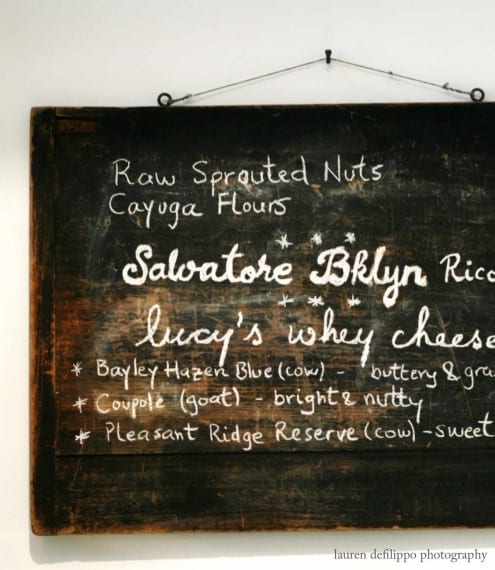 Raw Sprouted Nuts
Cayuga Flours
* * *
Salvatore Bklyn Rico
* * *
lucy's whey cheese
* Bayley Hazen Blue (cow) - buttery & gra
* Coupole (goat) - bright & nutty
* Pleasant Ridge Reserve (cow) - sweet
lauren defilippo photography